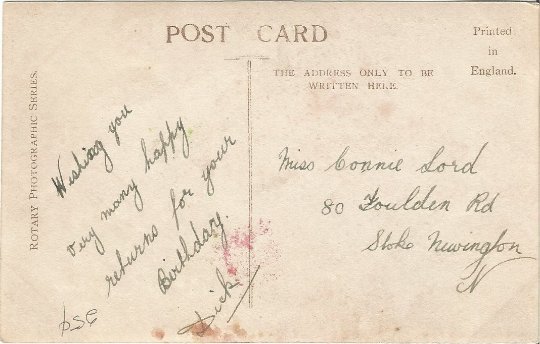 POST CARD
Printed
in
England.
THE ADDRESS ONLY TO BE
WRITTEN HERE.
ROTARY PHOTOGRAPHIC SERIES.
Wishing you
very many happy
returns for your
Birthday.
Dick
Miss Connie Lord
80 Foulden Rd
Stoke Newington
N